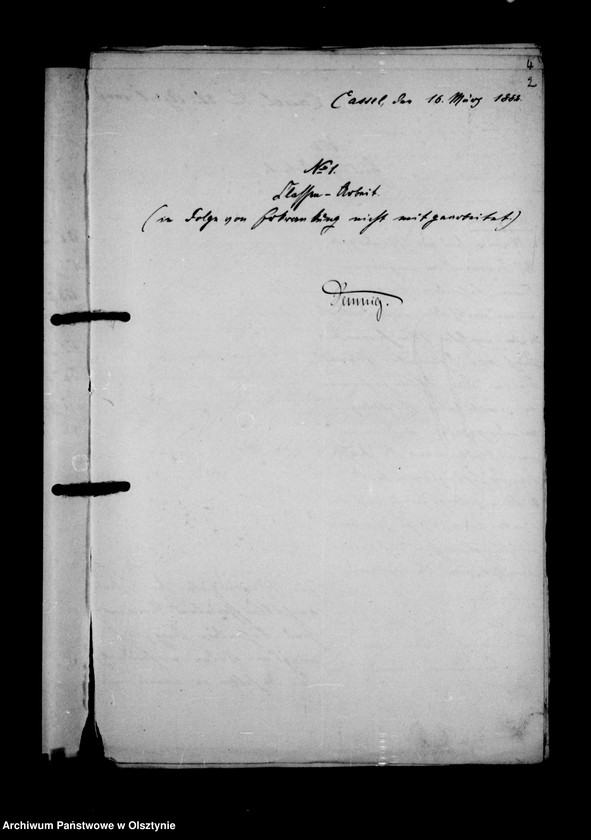 4
2
Cassel, den 16. März 188
No 1.
Klassen-Arbeit
(in Folge von Erkrankung nicht mitgearbeitet)
Hennig.
Archiwum Państwowe w Olsztynie